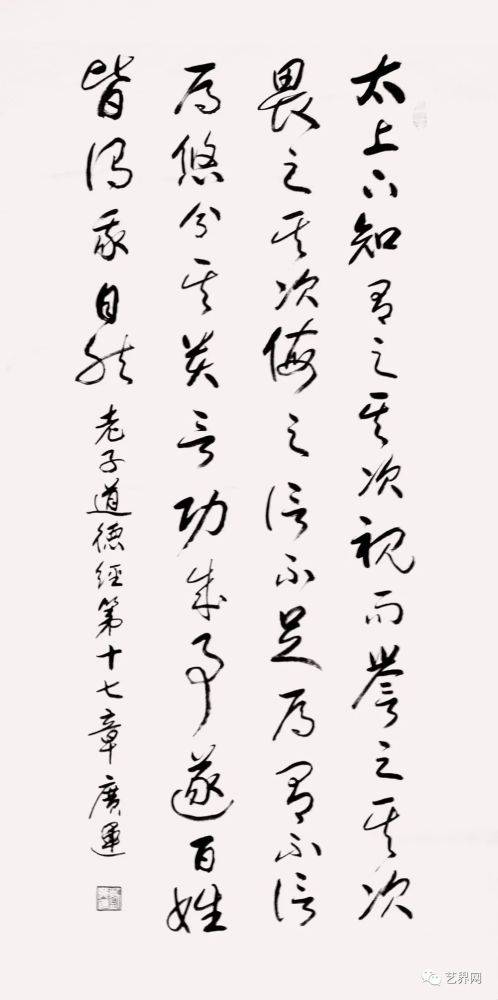 太上下知有之其次親而譽之其次
畏之其次侮之信不足焉有不信
焉悠兮其貴言功成事遂百姓
皆謂我自然 老子道德經第十七章 廣運
艺界网